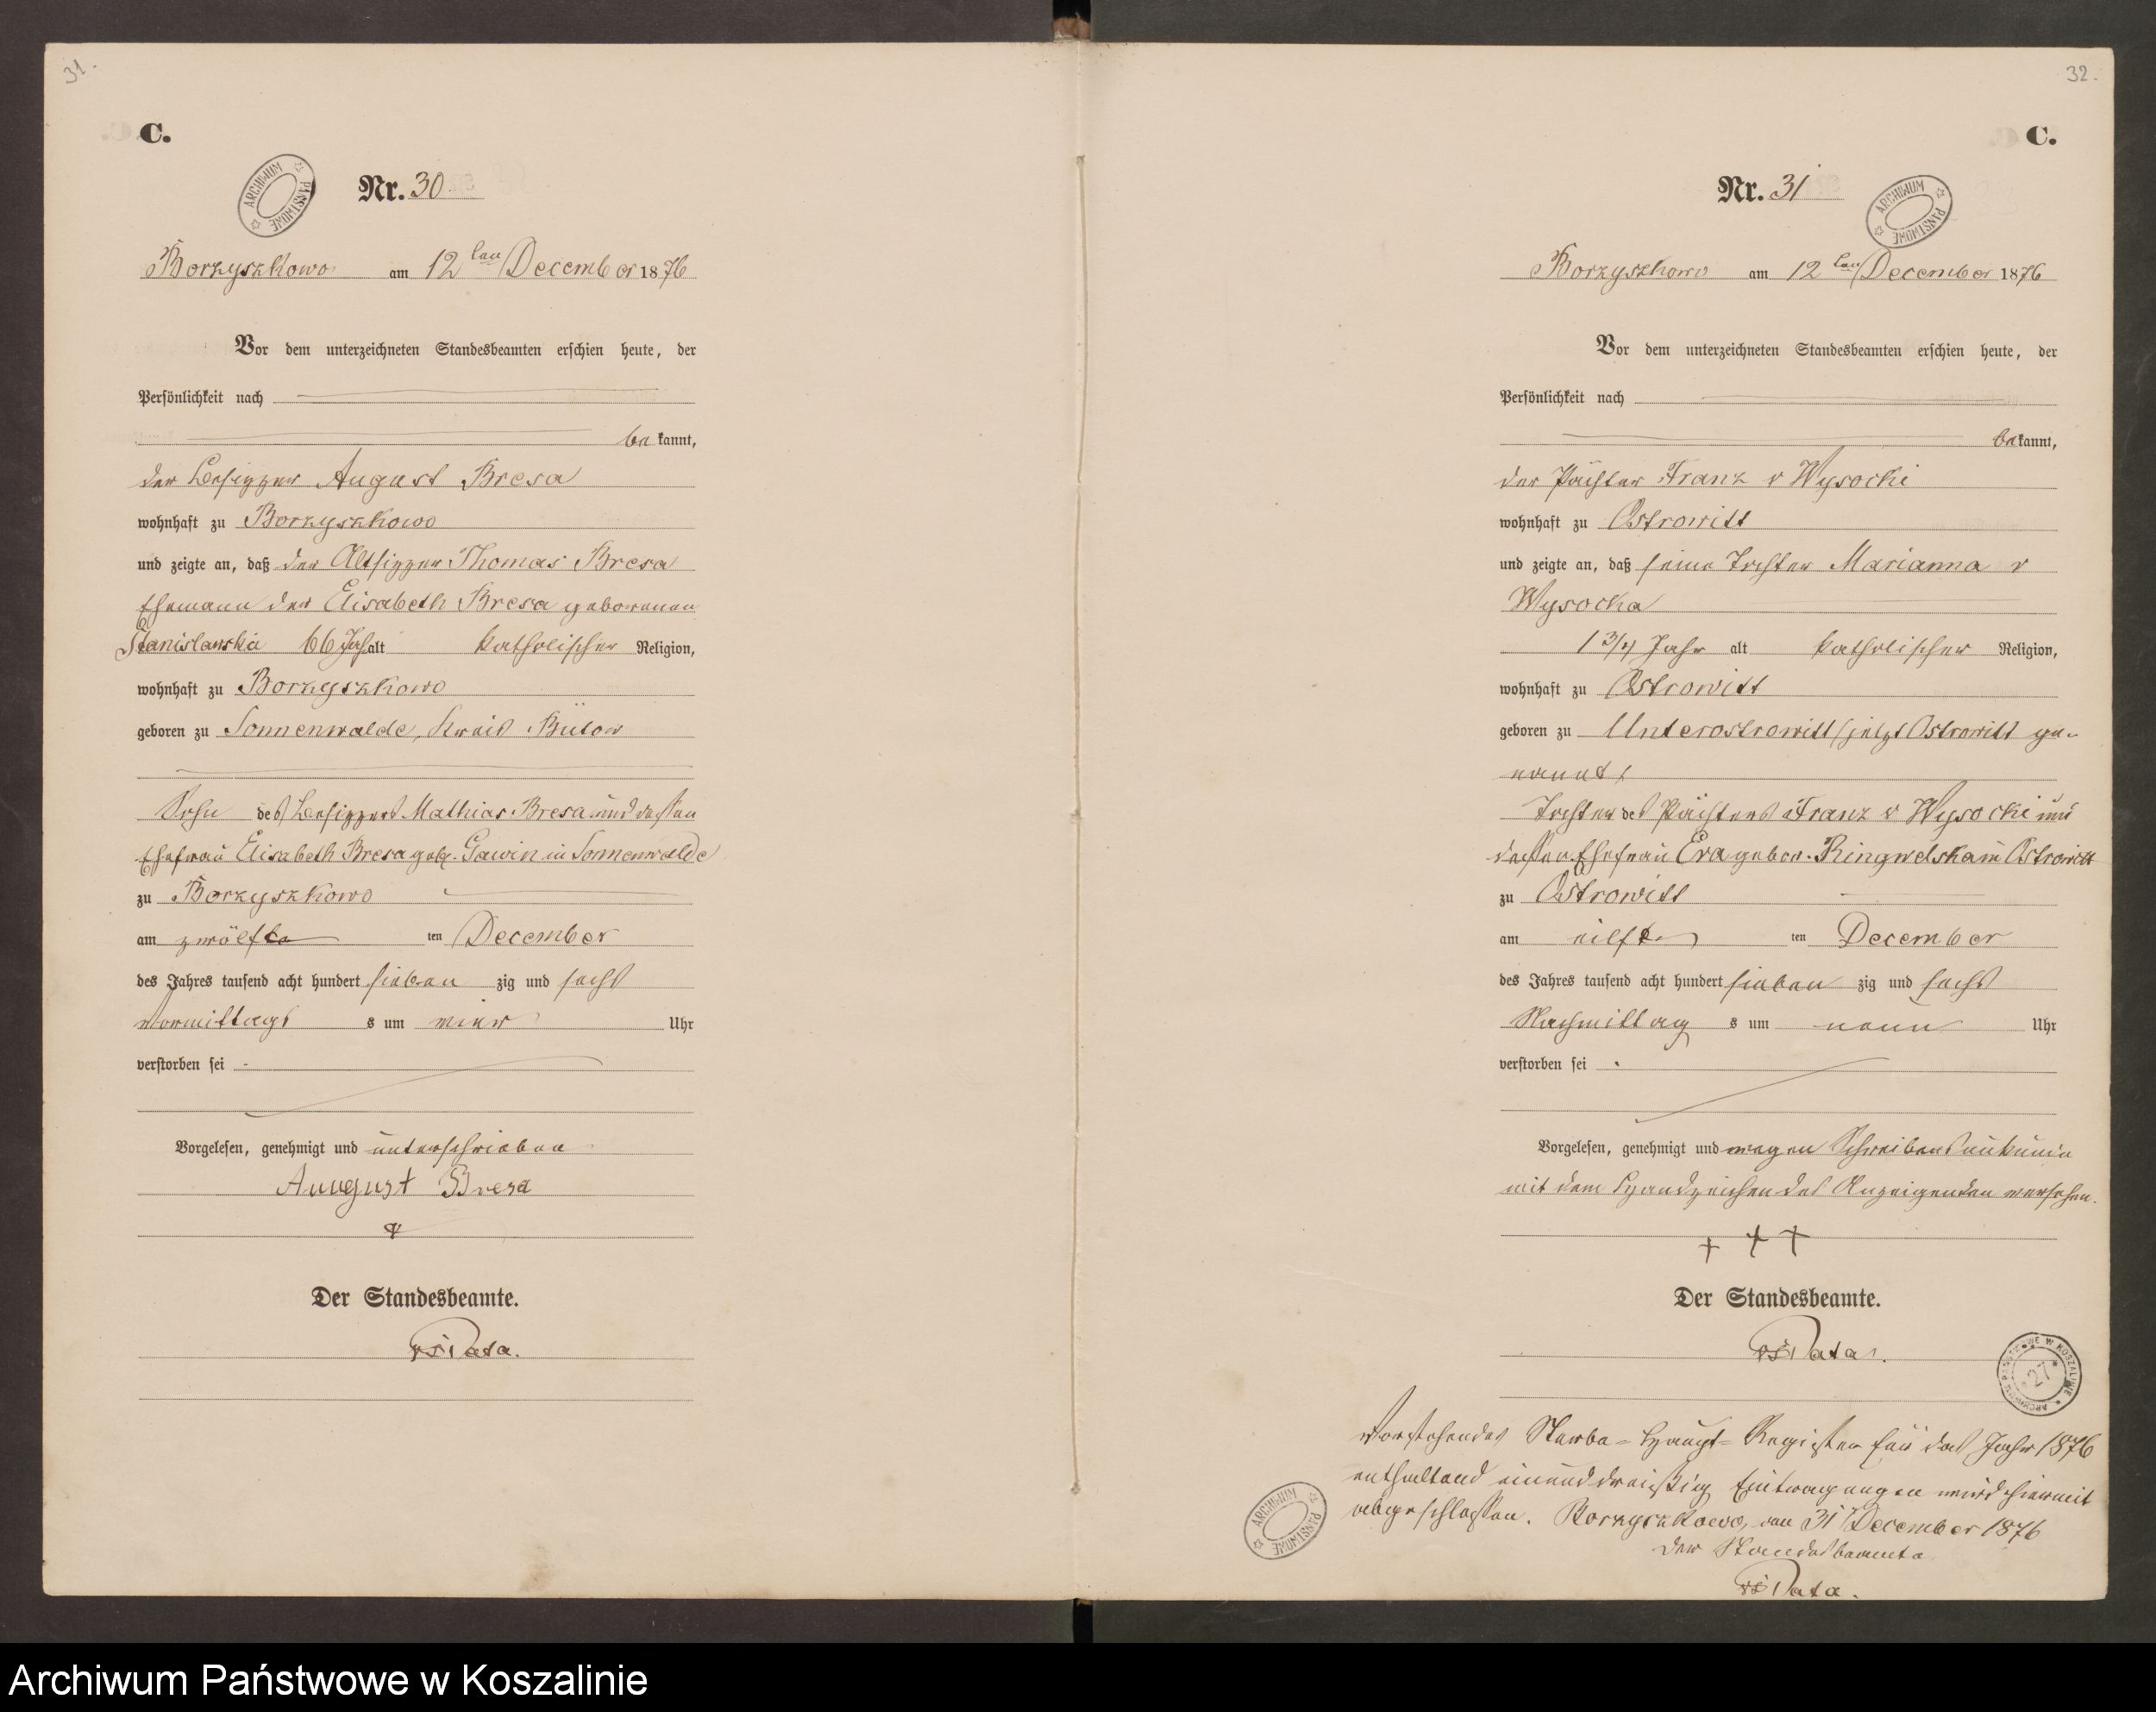 31.
C.
ARCHIWUM PAŃSTWOWE
Nr. 30
Borzyszkowo am 12ten December 1876
Vor dem unterzeichneten Standesbeamten erschien heute, der
Persönlichkeit nach
be kannt,
der Besitzer August Bresa
wohnhaft zu Borzyszkowo
und zeigte an, daß der Altsitzer Thomas Bresa
Ehemann der Elisabeth Bresa geborenen
Stanislawska 66 Jahr alt katholischer Religion,
wohnhaft zu Borzyszkowo
geboren zu Sonnenwalde, Kreis Bütow
Sohn des Besitzers Mathias Bresa und dessen
Ehefrau Elisabeth Bresa geb. Gawin in Sonnenwalde
zu Borzyszkowo
am zwölften ten December
des Jahres tausend acht hundert sieben zig und sechs
Vormittags s um vier Uhr
verstorben sei
Vorgelesen, genehmigt und unterschrieben
Auugust Bresa
Der Standesbeamte.
Pata.
32.
C.
Nr. 31
ARCHIWUM PAŃSTWOWE
Borzyszkowo am 12ten December 1876
Vor dem unterzeichneten Standesbeamten erschien heute, der
Persönlichkeit nach
be kannt,
der Pächter Franz v Wysocki
wohnhaft zu Ostrowitt
und zeigte an, daß seine Tochter Marianna v
Wysocka
1 3/4 Jahr alt katholischer Religion,
wohnhaft zu Ostrowitt
geboren zu Unterostrowitt (jetzt Ostrowitt ge-
nannt)
Tochter des Pächters Franz v Wysocki und
dessen Ehefrau Eva gebor. Ringwelska in Ostrowitt
zu Ostrowitt
am eilften ten December
des Jahres tausend acht hundert sieben zig und sechs
Nachmittag s um neun Uhr
verstorben sei
Vorgelesen, genehmigt und wegen Schreibensunkunde
mit dem Handzeichen des Anzeigenden versehen.
+ + +
Der Standesbeamte.
Pata.
ARCHIWUM PAŃSTWOWE W KOSZALINIE
27
Vorstehendes Sterbe-Haupt-Register für das Jahr 1876
enthaltend einunddreißig Eintragungen wird hiermit
abgeschlossen. Borzyszkowo, den 31 December 1876
Der Standesbeamte
Pata.
ARCHIWUM PAŃSTWOWE
Archiwum Państwowe w Koszalinie